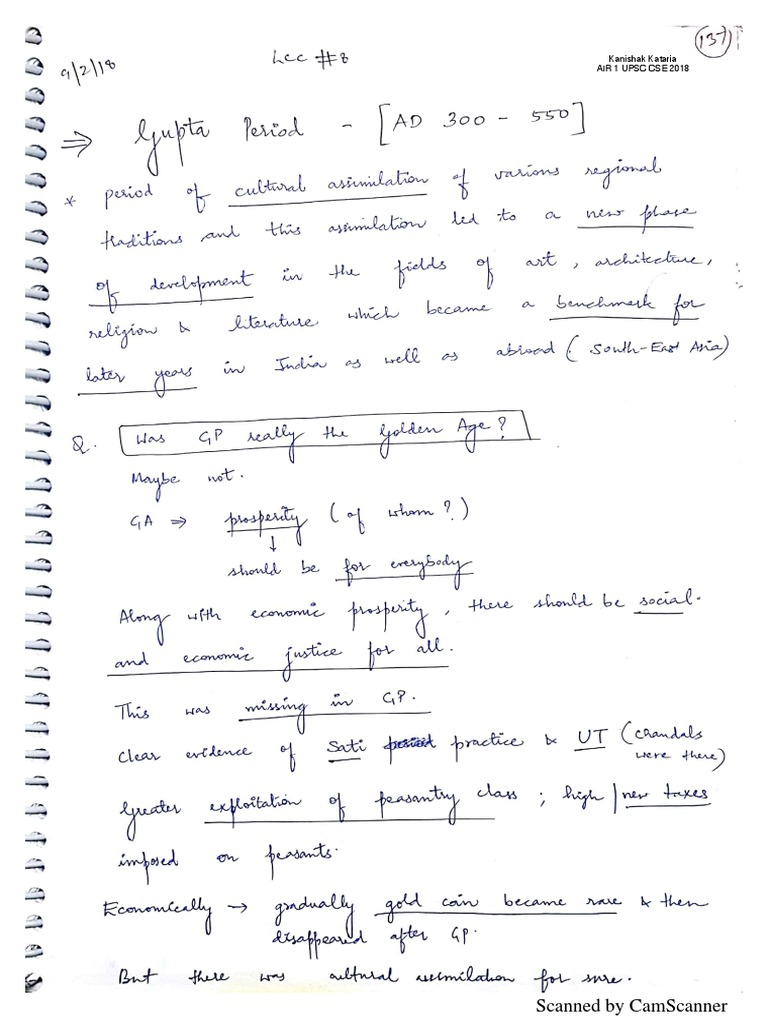 9/2/18
Lec #8
137
Kanishak Kataria
AIR 1 UPSC CSE 2018
⇒ Gupta Period - [AD 300 - 550]
* period of cultural assimilation of various regional
traditions, and this assimilation led to a new phase
of development in the fields of art, architecture,
religion & literature which became a benchmark for
later years in India as well as abroad (South-East Asia)
Q. Was GP really the Golden Age?
Maybe not.
GA ⇒ prosperity (of whom?)
↓
should be for everybody
Along with economic prosperity, there should be social
and economic justice for all.
This was missing in GP.
Clear evidence of Sati practice & UT (Chandals
were there)
Greater exploitation of peasantry class ; high/new taxes
imposed on peasants.
Economically → gradually gold coin became rare & then
disappeared after GP.
But there was cultural assimilation for sure.
Scanned by CamScanner